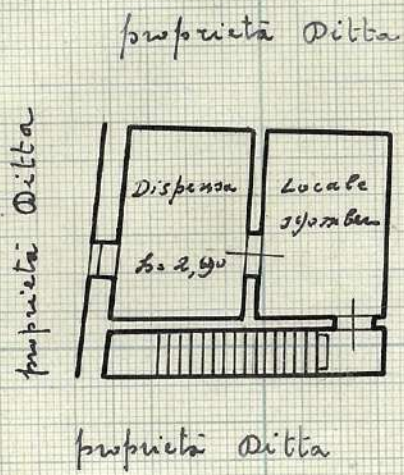 proprietà Ditta
proprietà Ditta
Dispensa
h= 2,90
Locale
sgombero
proprietà Ditta